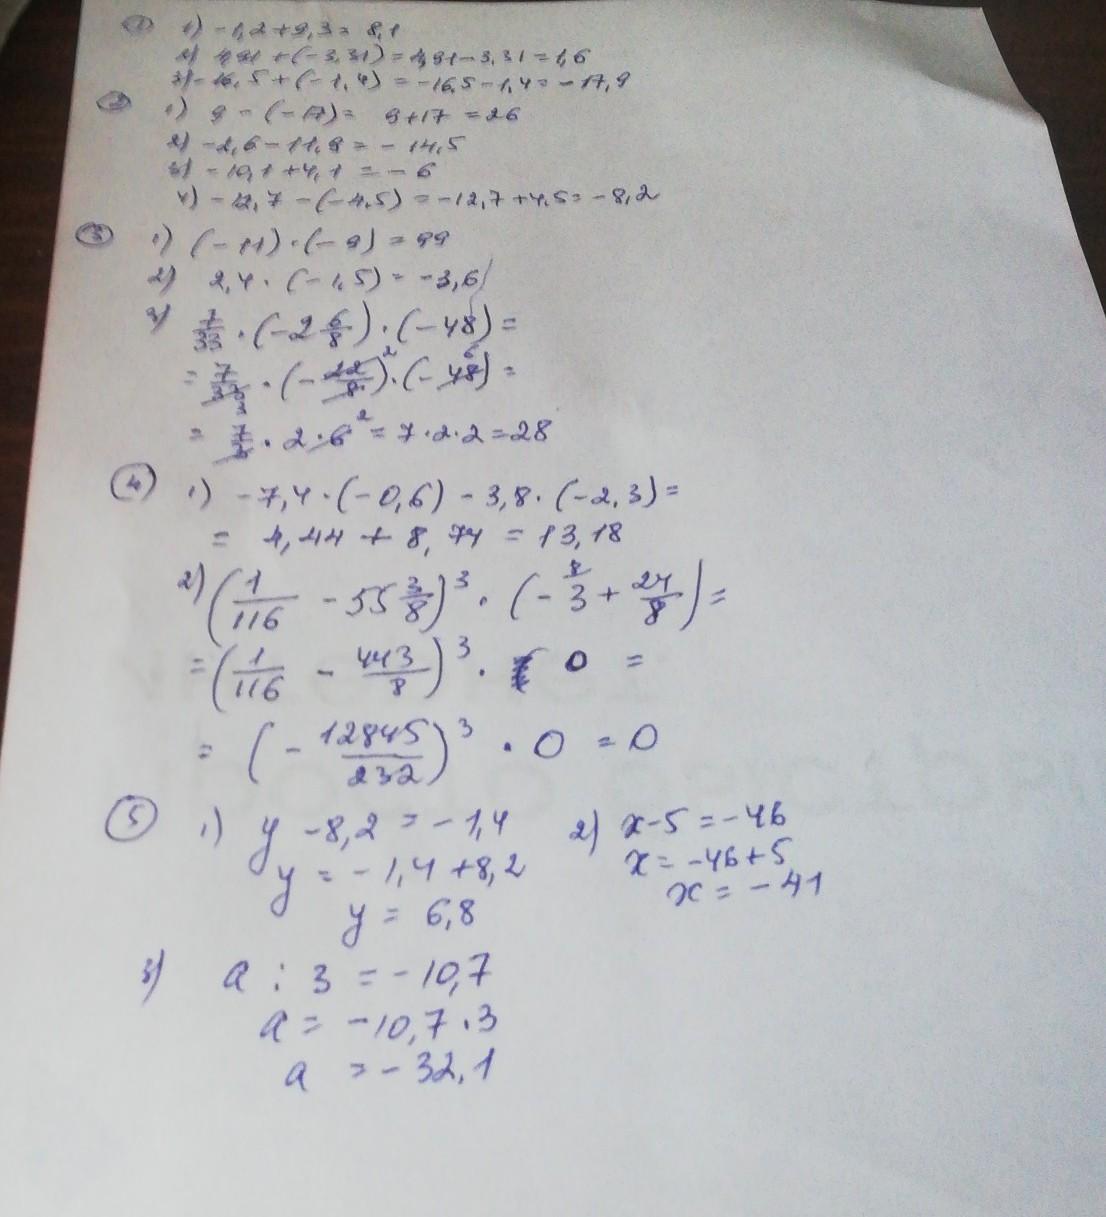 ① 1) -1,2+9,3= 8,1
2) 4,91 + (-3,31) = 4,91-3,31 = 1,6
3) -16,5+(-1,4) = -16,5-1,4= -17,9
② 1) 9 - (-17) = 9+17 = 26
2) -2,6-11,9 = -14,5
3) -10,1+4,1 = -6
4) -12,7 -(-4,5) = -12,7+4,5= -8,2
③ 1) (-11)·(-9) = 99
2) 2,4 · (-1,5) = -3,6
3) 7/33 · (-2 6/8) · (-48) =
= 7/33 3 · (-22/8) 2 · (-48) 6 =
= 7/3 · 2 · 6 2 = 7·2·2=28
④ 1) -7,4·(-0,6) - 3,8·(-2,3) =
= 4,44 + 8,74 = 13,18
2) (1/116 - 55 3/8)³ · (-3 + 24/8) =
= (1/116 - 443/8)³ · 0 =
= (-12845/232)³ · 0 = 0
⑤ 1) y -8,2 = -1,4
y = -1,4 +8,2
y = 6,8
2) x-5 = -46
x = -46+5
x = -41
3) a : 3 = -10,7
a = -10,7·3
a = -32,1